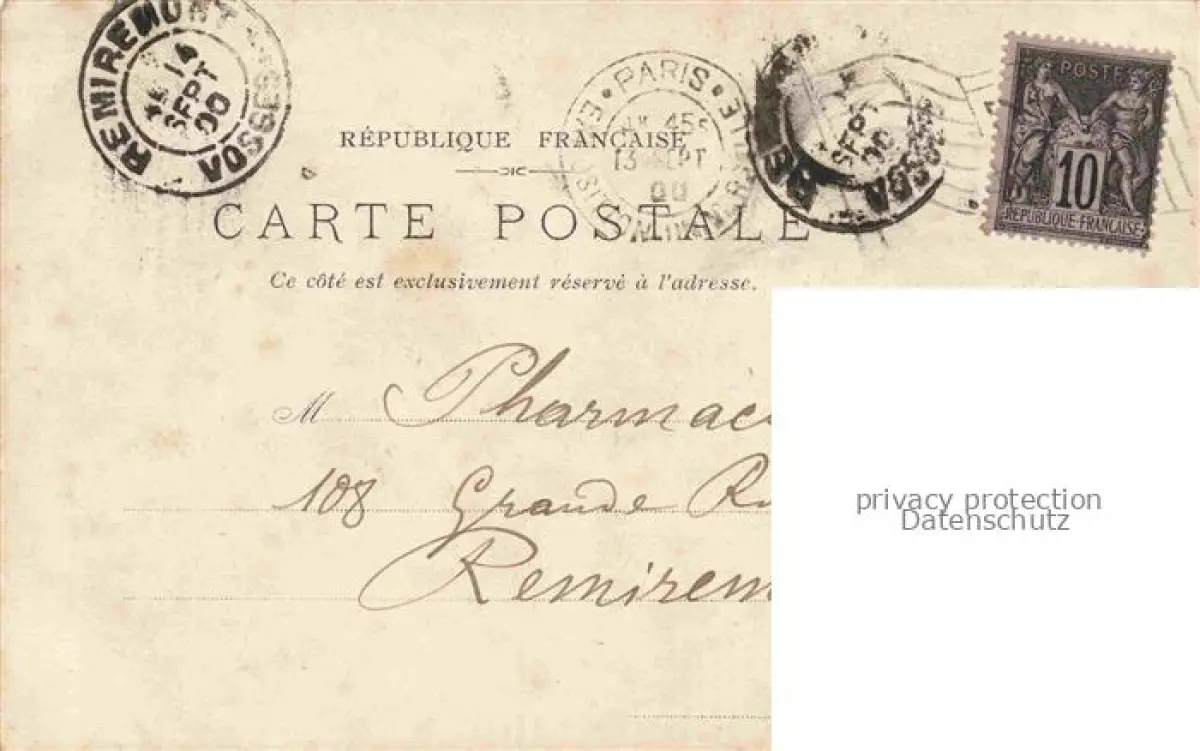 REMIREMONT VOSGES
14
SEPT
00
PARIS
13 SEPT
00
SEPT
00
POSTE
10
REPUBLIQUE FRANÇAISE
RÉPUBLIQUE FRANÇAISE
CARTE POSTALE
Ce côté est exclusivement réservé à l'adresse.
M Pharmaci
108 Grande Ru
Remirem
privacy protection
Datenschutz